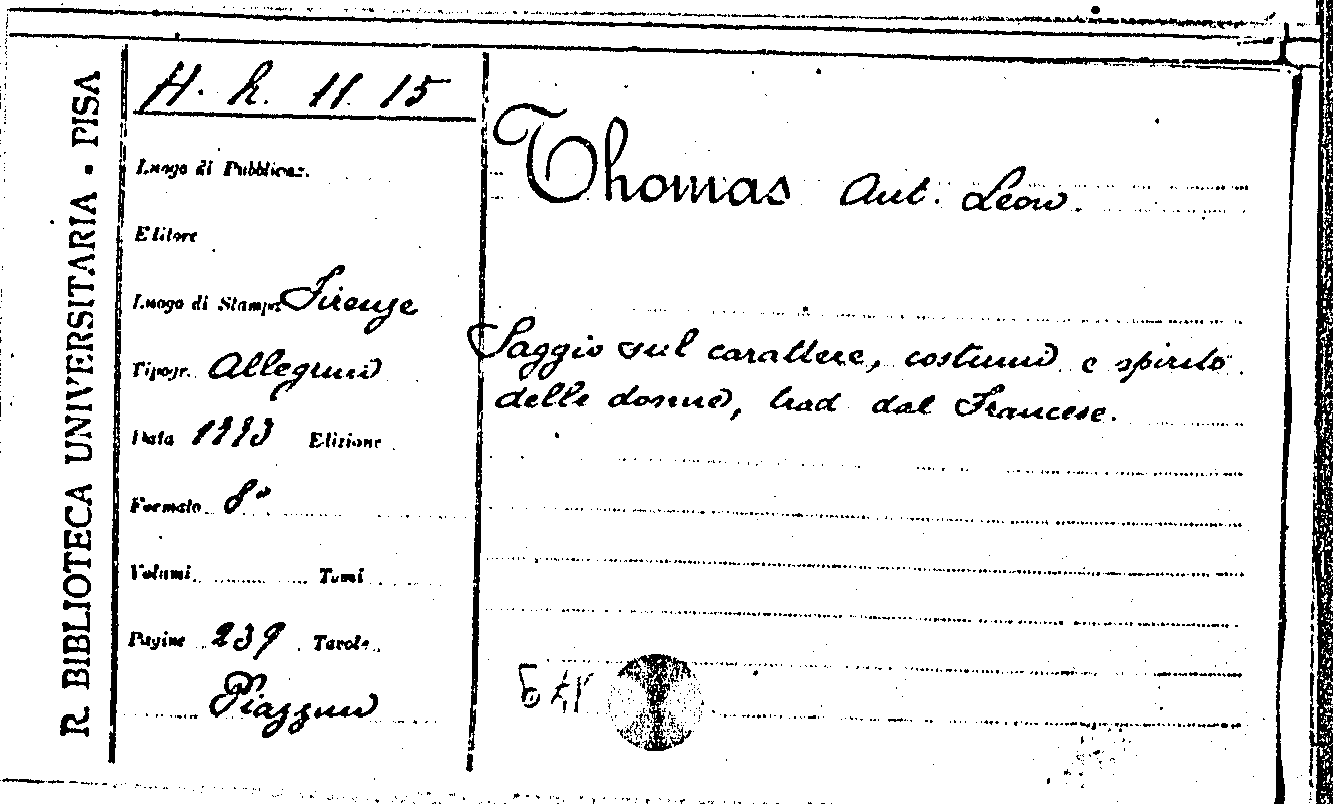 R. BIBLIOTECA UNIVERSITARIA - PISA
H. h. 11. 15
Luogo di Pubblicaz.
Editore
Luogo di Stampa Firenze
Tipogr. Allegrini
Data 1773 Edizione
Formato 8°
Volumi Tomi
Pagine 239 Tavole
Piazzini
Thomas Ant. Leon.
Saggio sul carattere, costumi e spirito
delle donne, trad dal Francese.